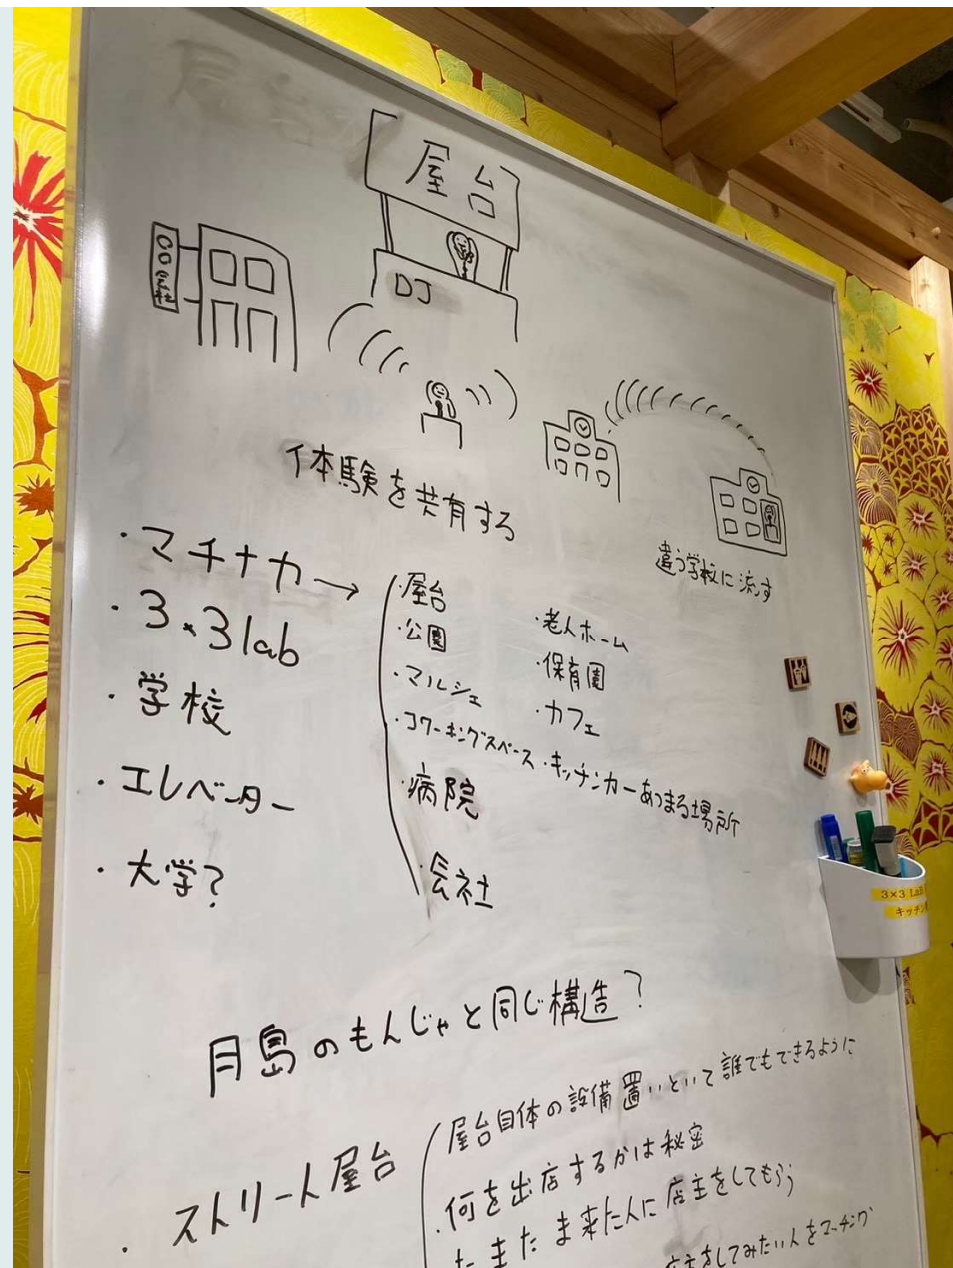 屋台
〇〇会社
DJ
体験を共有する
違う学校に流す
・マチナカ→
・3×3lab
・学校
・エレベーター
・大学?
・屋台
・公園
・マルシェ
・コワーキングスペース
・病院
・会社
・老人ホーム
・保育園
・カフェ
・キッチンカーあつまる場所
月島のもんじゃと同じ構造?
・ストリート屋台
屋台自体の設備置いといて誰でもできるように
・何を出店するかは秘密
たまたま来た人に店主をしてもらう
店主をしてみたい人をマッチング
3×3 Lab
キッチン